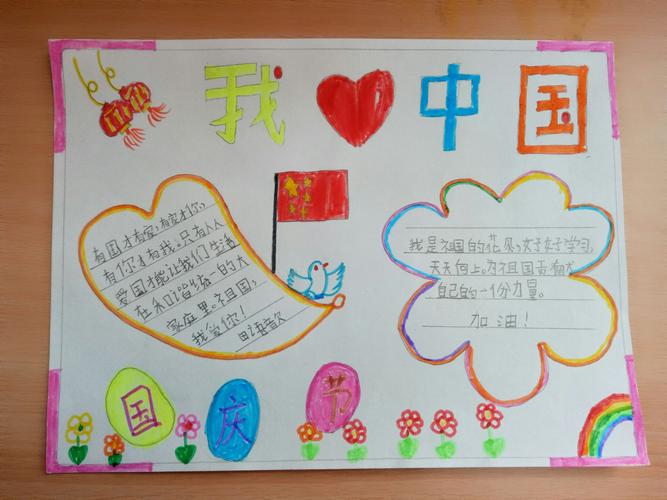 我中国
有国才有家,有家才你,
有你才有我。只有人人
爱国才能让我们生活
在和谐统一的大
家庭里。祖国,
我爱你! 田语歆
我是祖国的花朵,好好学习,
天天向上。为祖国贡献
自己的一份力量。
加油!
国庆节